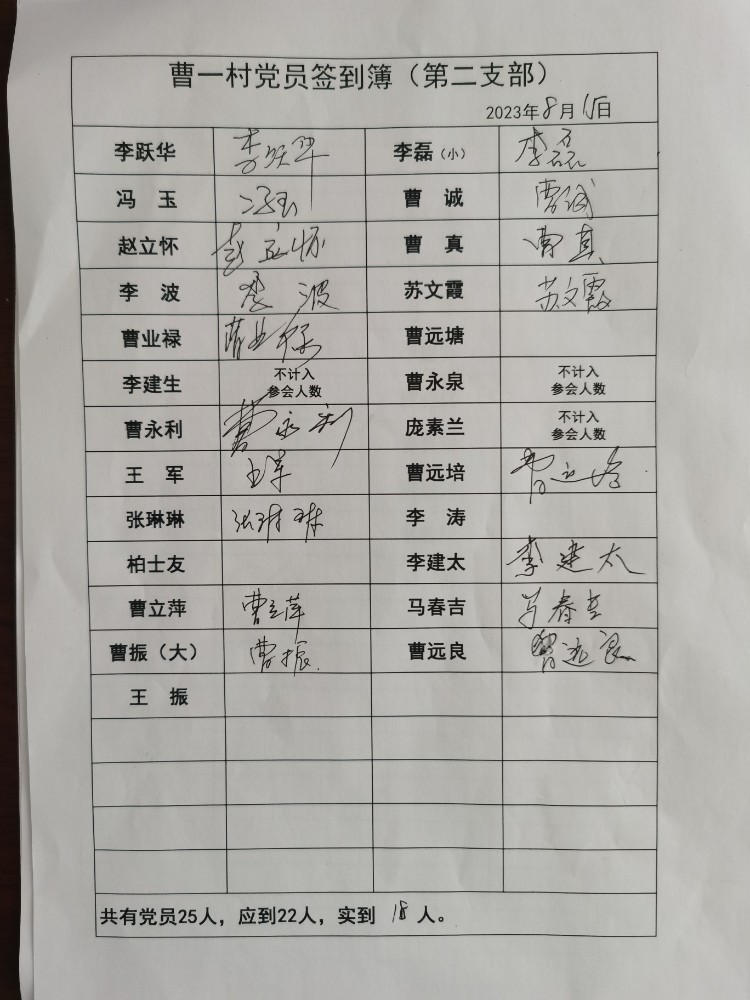 曹一村党员签到簿（第二支部）
2023年8月15日
李跃华 李跃华 李磊（小） 李磊
冯 玉 冯玉 曹 诚 曹诚
赵立怀 赵立怀 曹 真 曹真
李 波 李波 苏文霞 苏文霞
曹业禄 曹业禄 曹远塘
李建生 不计入 曹永泉 不计入
参会人数 参会人数
曹永利 曹永利 庞素兰 不计入
参会人数
王 军 王军 曹远培 曹远培
张琳琳 张琳琳 李 涛
柏士友 李建太 李建太
曹立萍 曹立萍 马春吉 马春吉
曹振（大） 曹振 曹远良 曹远良
王 振
共有党员25人，应到22人，实到 18 人。